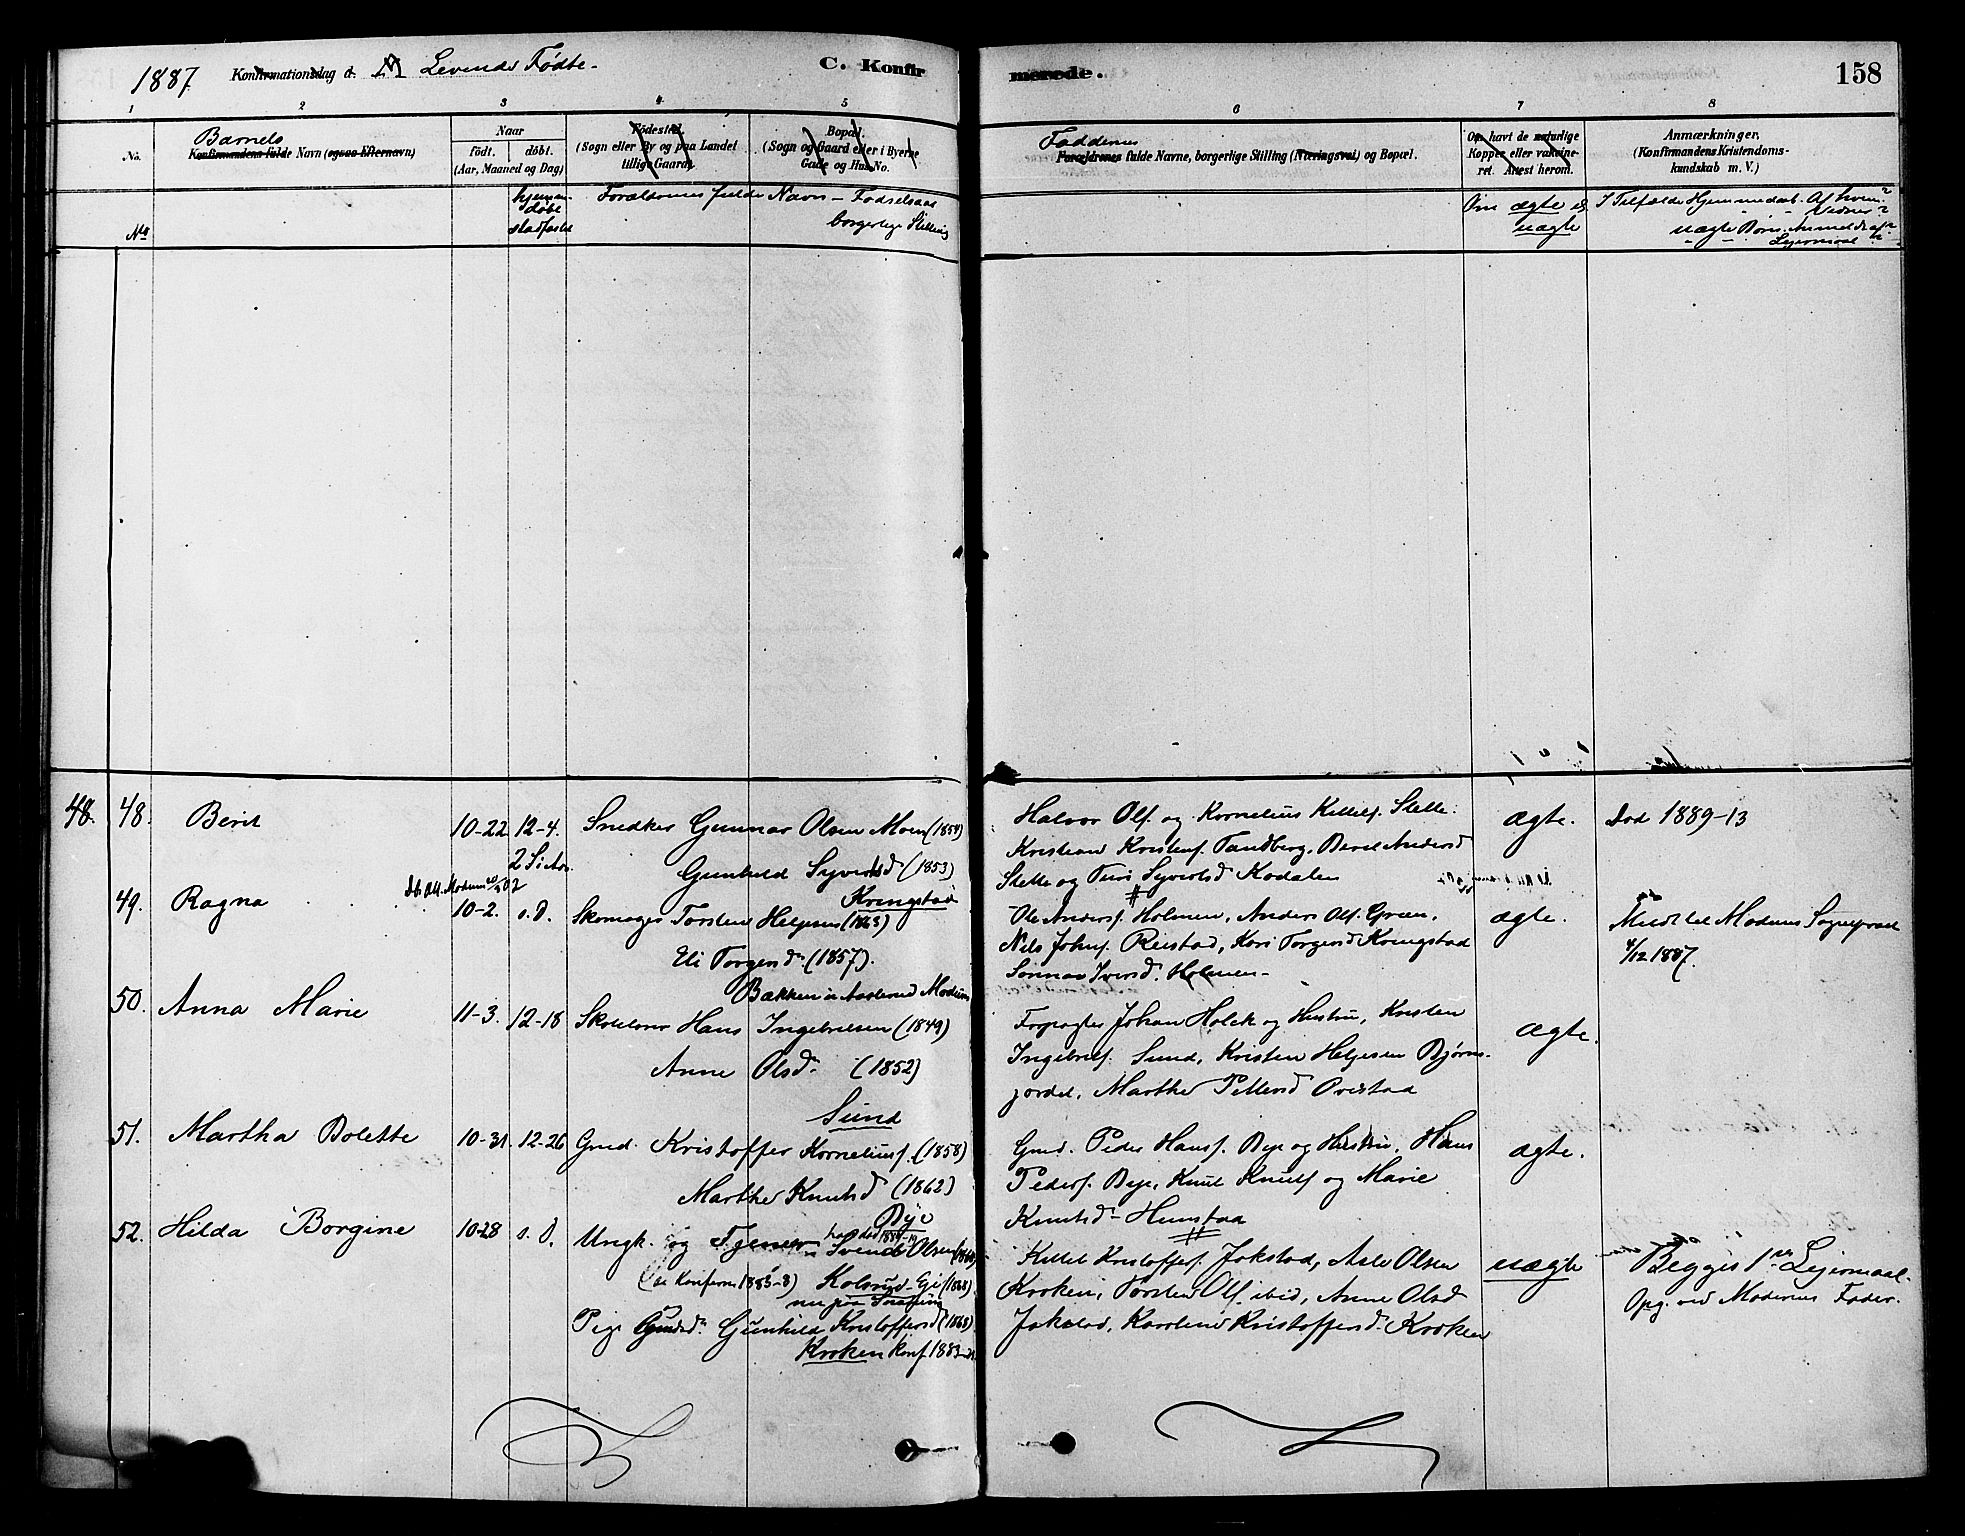 1887 Konfirmationsdag d. Levende Fødte.
C. Konfir
merede.
158
1 2 3 4 5 6 7 8
No.
Barnets
Konfirmandens fulde Navn (ogsaa Efternavn)
Naar
født. døbt.
(Aar, Maaned og Dag)
Fødested.
(Sogn eller By og paa Landet
tillige Gaard)
Bopæl.
(Sogn og Gaard eller i Byerne
Gade og Hus No.
Faddernes
Forældrenes fulde Navne, borgerlige Stilling (Næringsvei) og Bopæl.
Om havt de naturlige
Kopper eller vaksine-
ret. Attest herom.
Anmærkninger.
(Konfirmandens Kristendoms-
kundskab m. V.)
No
hjemme-
døbt
stadfæstet
Forældrenes fulde Navn - Fødselsaar
borgerlige Stilling
Om ægte el.
uægte
I Tilfælde Hjemmedaab. Af hvem?
Vidner?
uægte Børn. Anmeldt af?
Leiermaal?
48. 48. Berit 10-22 12-4. Snedker Gunnar Olsen Moen (1854)
2 S. i Adv.
Gunhild Syvertsd (1853)
Halvor Ols. og Kornelius Kittels. Slette.
Kristian Kristens. Tandberg, Berit Andersd
Slette og Turi Syvertsd Kodalen
ægte. Død 1889-13
49. Ragna 10-2. s. D. Skomager Torsten Helgesen (1863)
Kringstad
Eli Torgersd. (1857).
Ole Anders. Holmen, Anders Ols. Green,
Nils Johns. Reistad, Kari Torgersd Kringstad
Iversd. Holmen-
ægte. Meddelt Modums Sognepræst
4/12 1887.
50. Anna Marie 11-3. 12-18 Skolelærer Hans Ingebretsen (1849)
Bækken i Modum
Anne Olsd. (1852)
Forpagter Johan Holck og Hustru, Kristen
Ingebrets. Sund, Kristen Helgesen Bjørns-
jordet, Marthe Pettersd Ovestad
ægte.
51. Martha Bolette 10-31. 12-26 Grnd. Kristoffer Kornelius. (1858)
Sund
Marthe Knutsd (1862)
Grnd. Peder Hans. Bye og Hustru, Hans
Peders. Bye, Knut Knuts og Marie
Knutsd. Hunstad
ægte.
52. Hilda Borgine 10-28 s. D. Ungk. og Tjener Svend Olsen
Bye
(se Konferm 1885-8) Kolsrud Eje (1868)
nu paa
Pige Gunhild Kristoffersd (1868)
Kroken konf 1883-
Kittel Kristoffers. Jokstad, Asle Olsen
Kroken, Torsten Ols. ibid, Anne Olsd
Jokstad, Karoline Kristoffersd. Kroken
uægte Begges 1ste Leiermaal.
Opg. ved Moderens Fader.